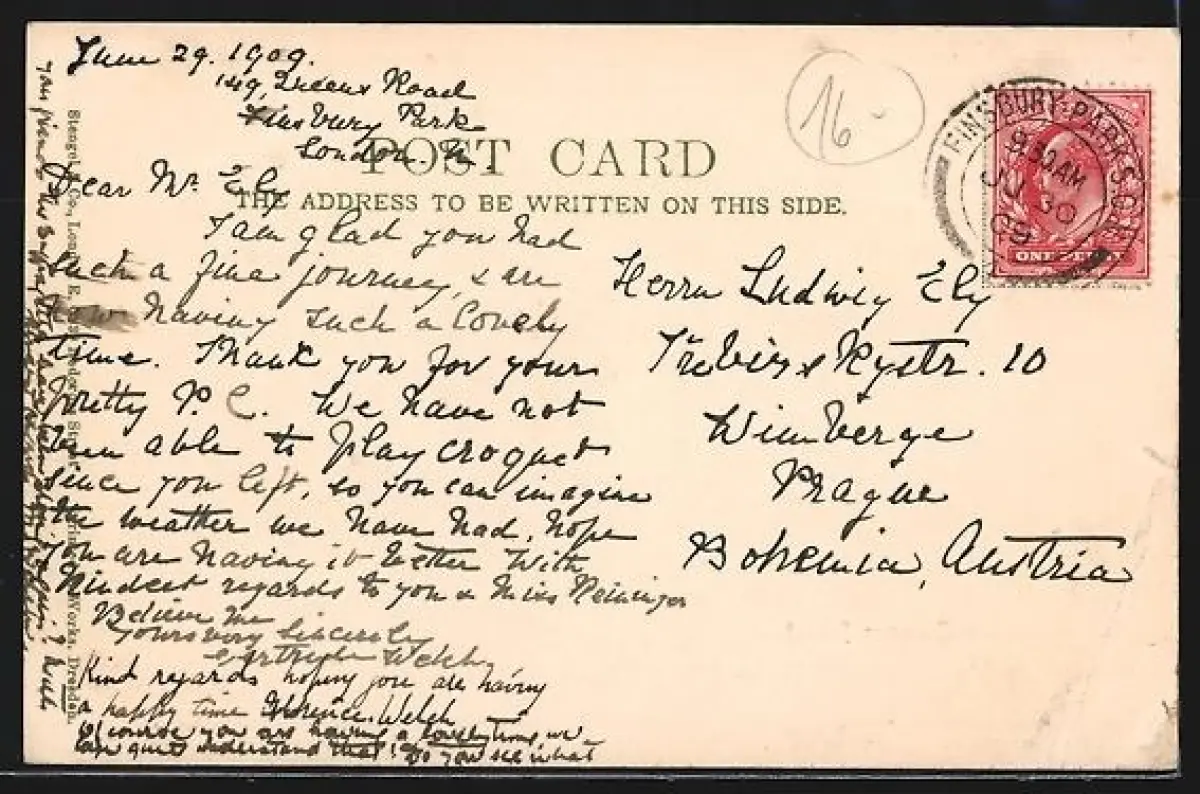 June 29. 1909.
149, Queens Road
Finsbury Park
London. N
POST CARD
THE ADDRESS TO BE WRITTEN ON THIS SIDE.
16-
FINSBURY-PARK S.O.
9 30 AM
JU 30
09
ONE PENNY
Dear Mr. Ely
I am glad you had
such a fine journey, & are
now having such a lovely
time. Thank you for your
pretty P. C. We have not
been able to play croquet
since you left, so you can imagine
the weather we have had, hope
you are having it better With
Kindest regards to you & Miss
Believe me
Yours very sincerely
Gertrude Welch
Kind regards hoping you are having
a happy time Florence. Welch
Of course you are having a lovely time we
can quite understand that! Do you see what
Herrn Ludwig Ely
10
Prague
Bohemia, Austria
Stengel & Co., London E.
Works, Dresden.